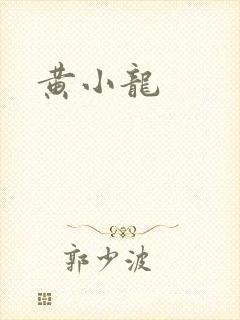 黄小龍
郭少波